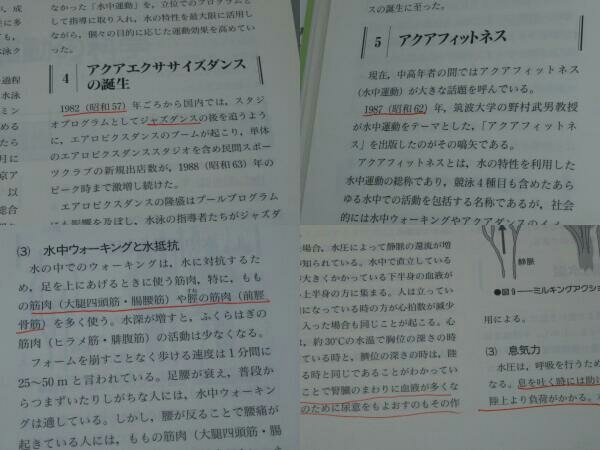 なから「水中運動」を、立位でのプログラムと
して指導に取り入れ、水の特性を最大限に活用し
ながら、個々の目的に応じた運動効果を高めてい
った。
4 アクアエクササイズダンス
の誕生
1982（昭和57）年ごろから国内では、スタジ
オプログラムとしてジャズダンスの後を追うよう
に、エアロビクスダンスのブームが起こり、単体
のエアロビクスダンススタジオを含め民間スポー
ツクラブの新規出店数が、1988（昭和63）年の
ピーク時まで激増し続けた。
エアロビクスダンスの隆盛はプールプログラム
にも影響を及ぼし、水泳の指導者たちがジャズダ
スの誕生に至った。
5 アクアフィットネス
現在、中高年者の間ではアクアフィットネス
（水中運動）が大きな話題を呼んでいる。
1987（昭和62）年、筑波大学の野村武男教授
が水中運動をテーマとした，「アクアフィットネ
ス」を出版したのがその嚆矢である。
アクアフィットネスとは、水の特性を利用した
水中運動の総称であり、競泳4種目も含めたあら
ゆる水中での活動を包括する名称であるが、社会
的には水中ウォーキングやアクアダンスのイメ
(3) 水中ウォーキングと水抵抗
水の中でのウォーキングは、水に対抗するた
め、足を上にあげるときに使う筋肉，特に，もも
の筋肉（大腿四頭筋・腸腰筋）や脛の筋肉（前脛
骨筋）を多く使う。水深が増すと，ふくらはぎの
筋肉（ヒラメ筋・腓腹筋）の活動は少なくなる。
フォームを崩すことなく歩ける速度は1分間に
25～50mと言われている。足腰が衰え，普段か
らつまずいたりしがちな人には，水中ウォーキン
グは適している。しかし，腰が反ることで腰痛が
起きている人には，ももの筋肉（大腿四頭筋・腸
場合，水圧によって静脈の還流が増
知られている。水中で直立している
大きくかかっている下半身の血液が
上半身の方に集まる。人は立ってい
になっている時の方が心拍数が減少
入った場合も同じことが起こる。心
は，約30℃の水温で胸位の深さの時
ている時と，臍位の深さの時は，陸
る時と同じであることがわかってい
ことで腎臓のまわりに血液が多くな
のために尿意をもよおすのもその作
静脈
●図9―ミルキングアクショ
用による。
(3) 息気力
水圧は，呼吸を行うため
なる。息を吐く時には助け
陸上より負荷がかかる。